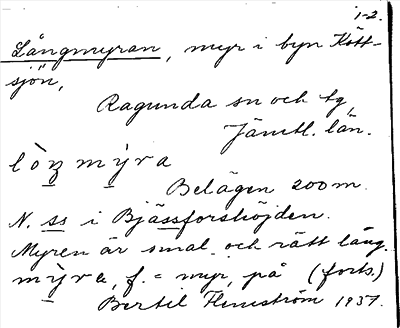 1-2.
Långmyran, myr i byn Kött-
sjön,
Ragunda sn och tg,
Jämtl. län.
lòŋ mỳra
Belägen 200 m.
N. ss i Bjässforshöjden.
Myren är smal och rätt lång.
mỳra, f. = myr, på (forts.)
Bertil Flemström 1937.